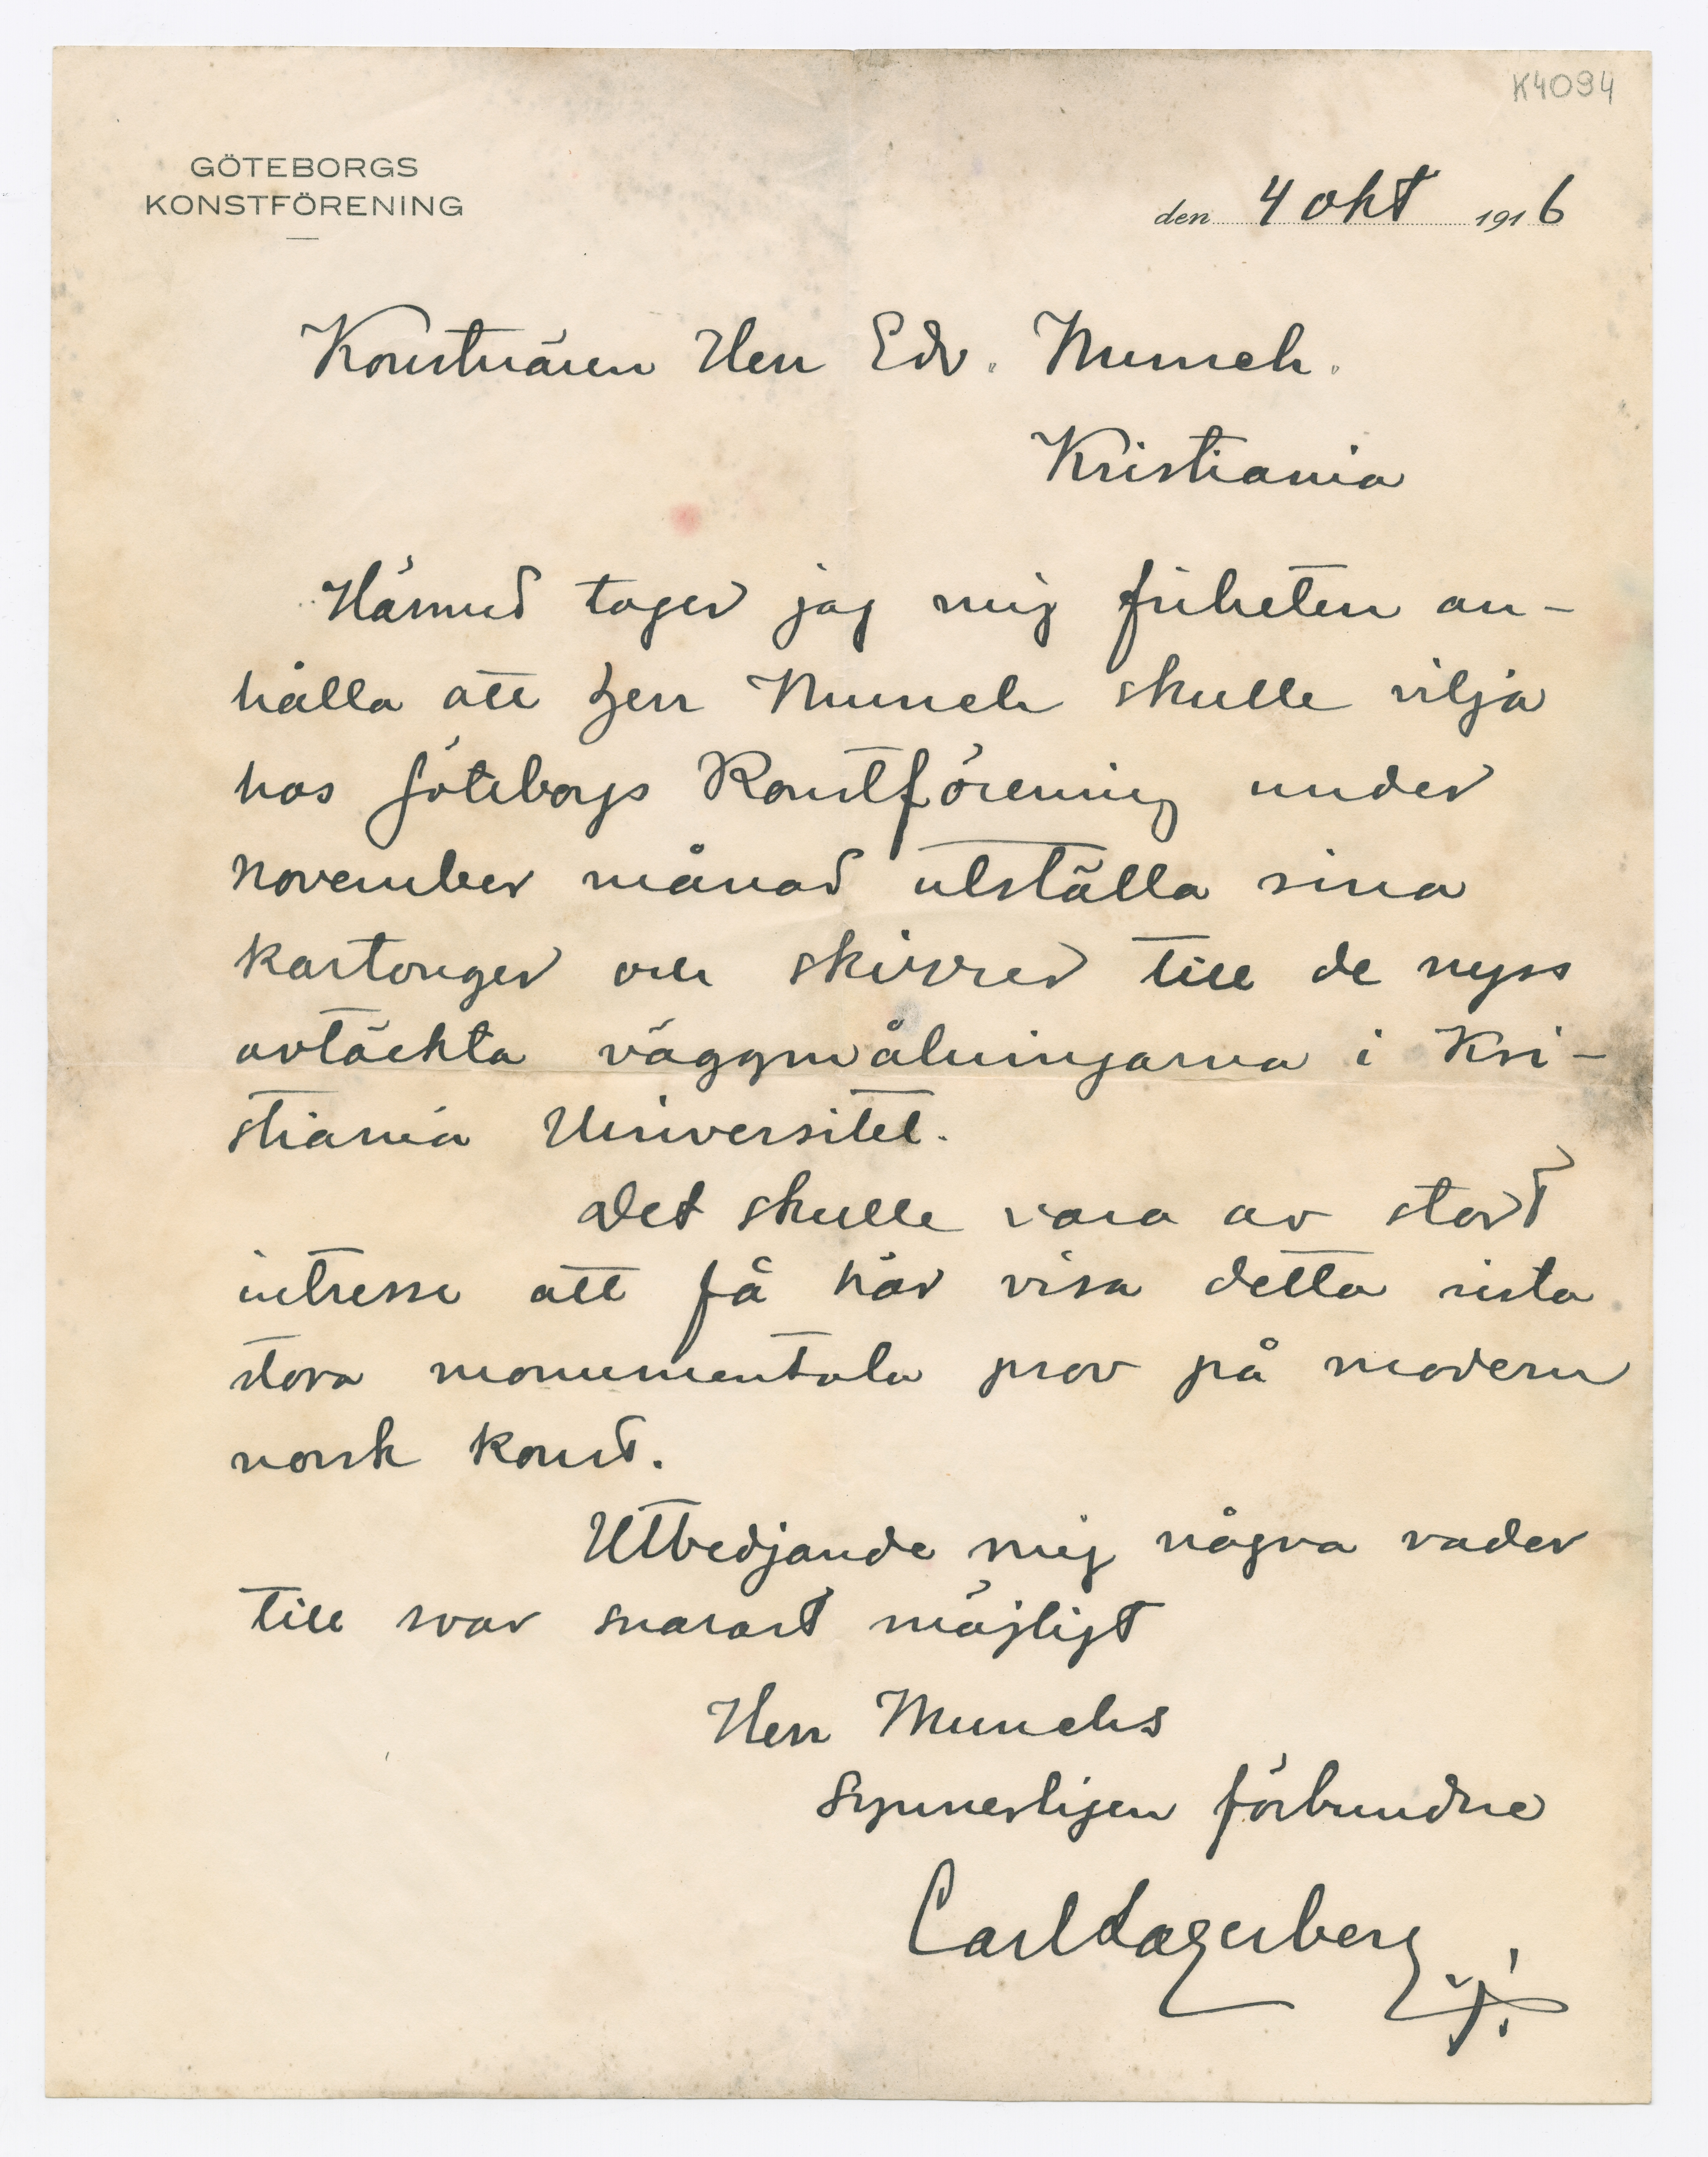 K4094
GÖTEBORGS
KONSTFÖRENING
den 4 okt 1916
Konstnären Herr Edv. Munch.
Kristiania
Härmed tager jag mig friheten an-
hålla att Herr Munch skulle vilja
hos Göteborgs Konstförening under
november månad utställa sina
kartonger och skizzer till de nyss
avtäckta väggmålningarna i Kri-
stiania Universitet.
Det skulle vara av stort
intresse att få här visa detta sista
stora monumentala prov på modern
norsk konst.
Utbedjande mig några rader
till svar snarast möjligt
Herr Munchs
Synnerligen förbundne
Carl Lagerberg